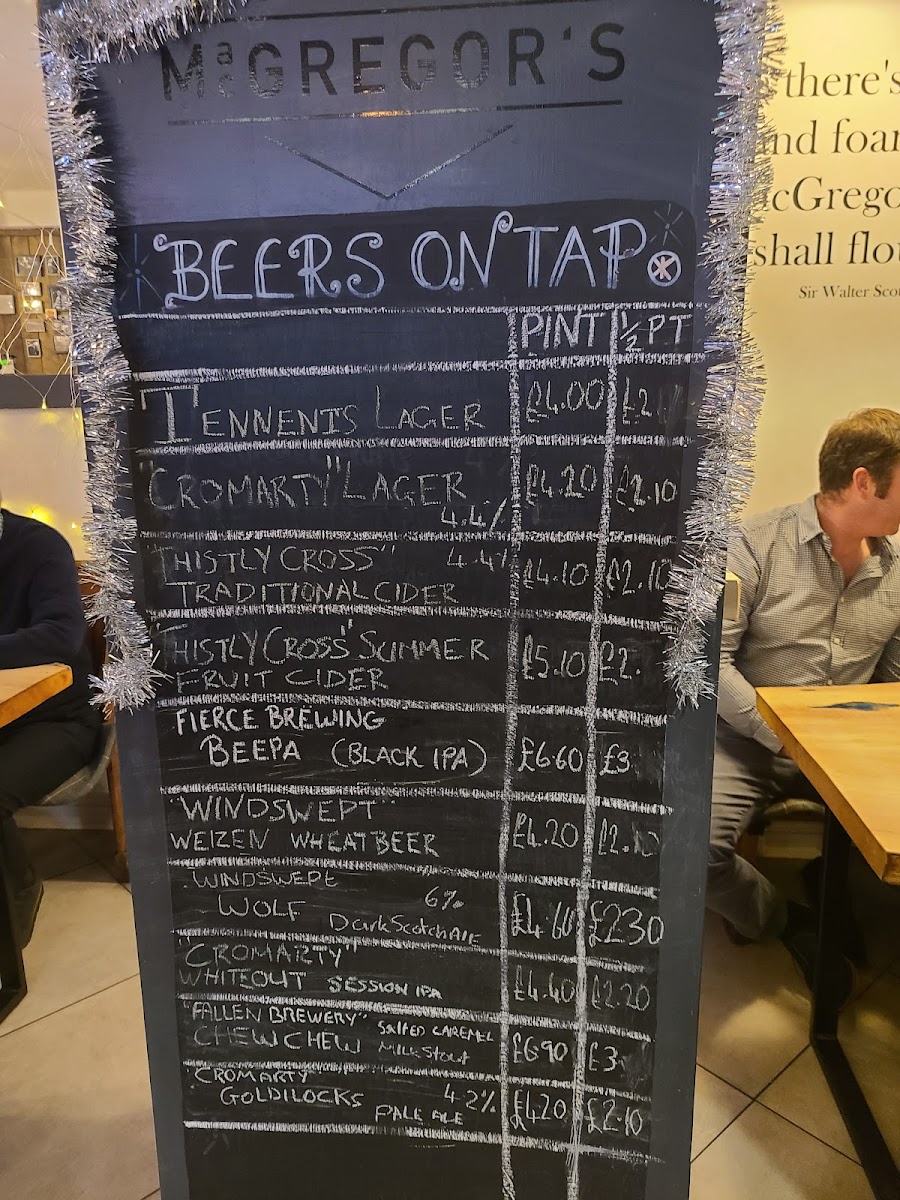 MacGREGOR'S
BEERS ON TAP
PINT ½ PT
TENNENTS LAGER £4.00 £2.
"CROMARTY" LAGER £4.20 £2.10
4.4%
"THISTLY CROSS" 4.4% £4.10 £2.10
TRADITIONAL CIDER
"THISTLY CROSS" SUMMER £5.10 £2.
FRUIT CIDER
FIERCE BREWING
BEEPA (BLACK IPA) £6.60 £3
"WINDSWEPT"
WEIZEN WHEATBEER £4.20 £2.10
WINDSWEPT
WOLF 6% £4.60 £2.30
DarkScotchAle
"CROMARTY"
WHITEOUT SESSION IPA £4.40 £2.20
"FALLEN BREWERY" SALTED CAREMEL
CHEWCHEW MILKStout £6.90 £3
CROMARTY
GOLDILOCKS 4.2% £4.20 £2.10
PALE ALE
there's
and foa
acGrego
shall flo
Sir Walter Sco